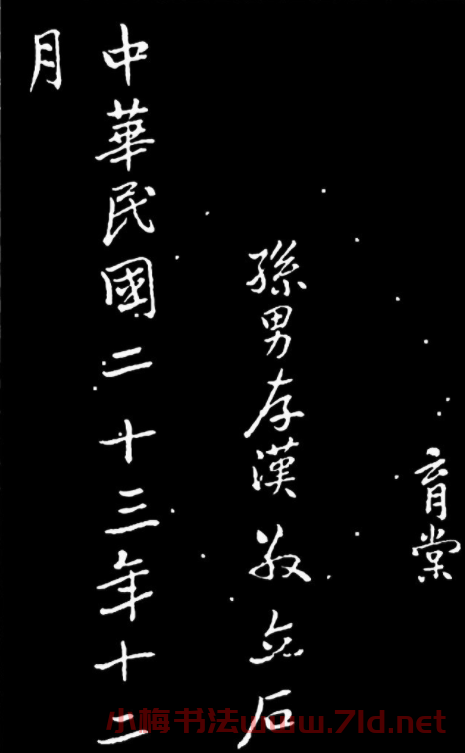 育棠
孫男存漢敬立石
中華民國二十三年十二
月
小梅书法www.7ld.net